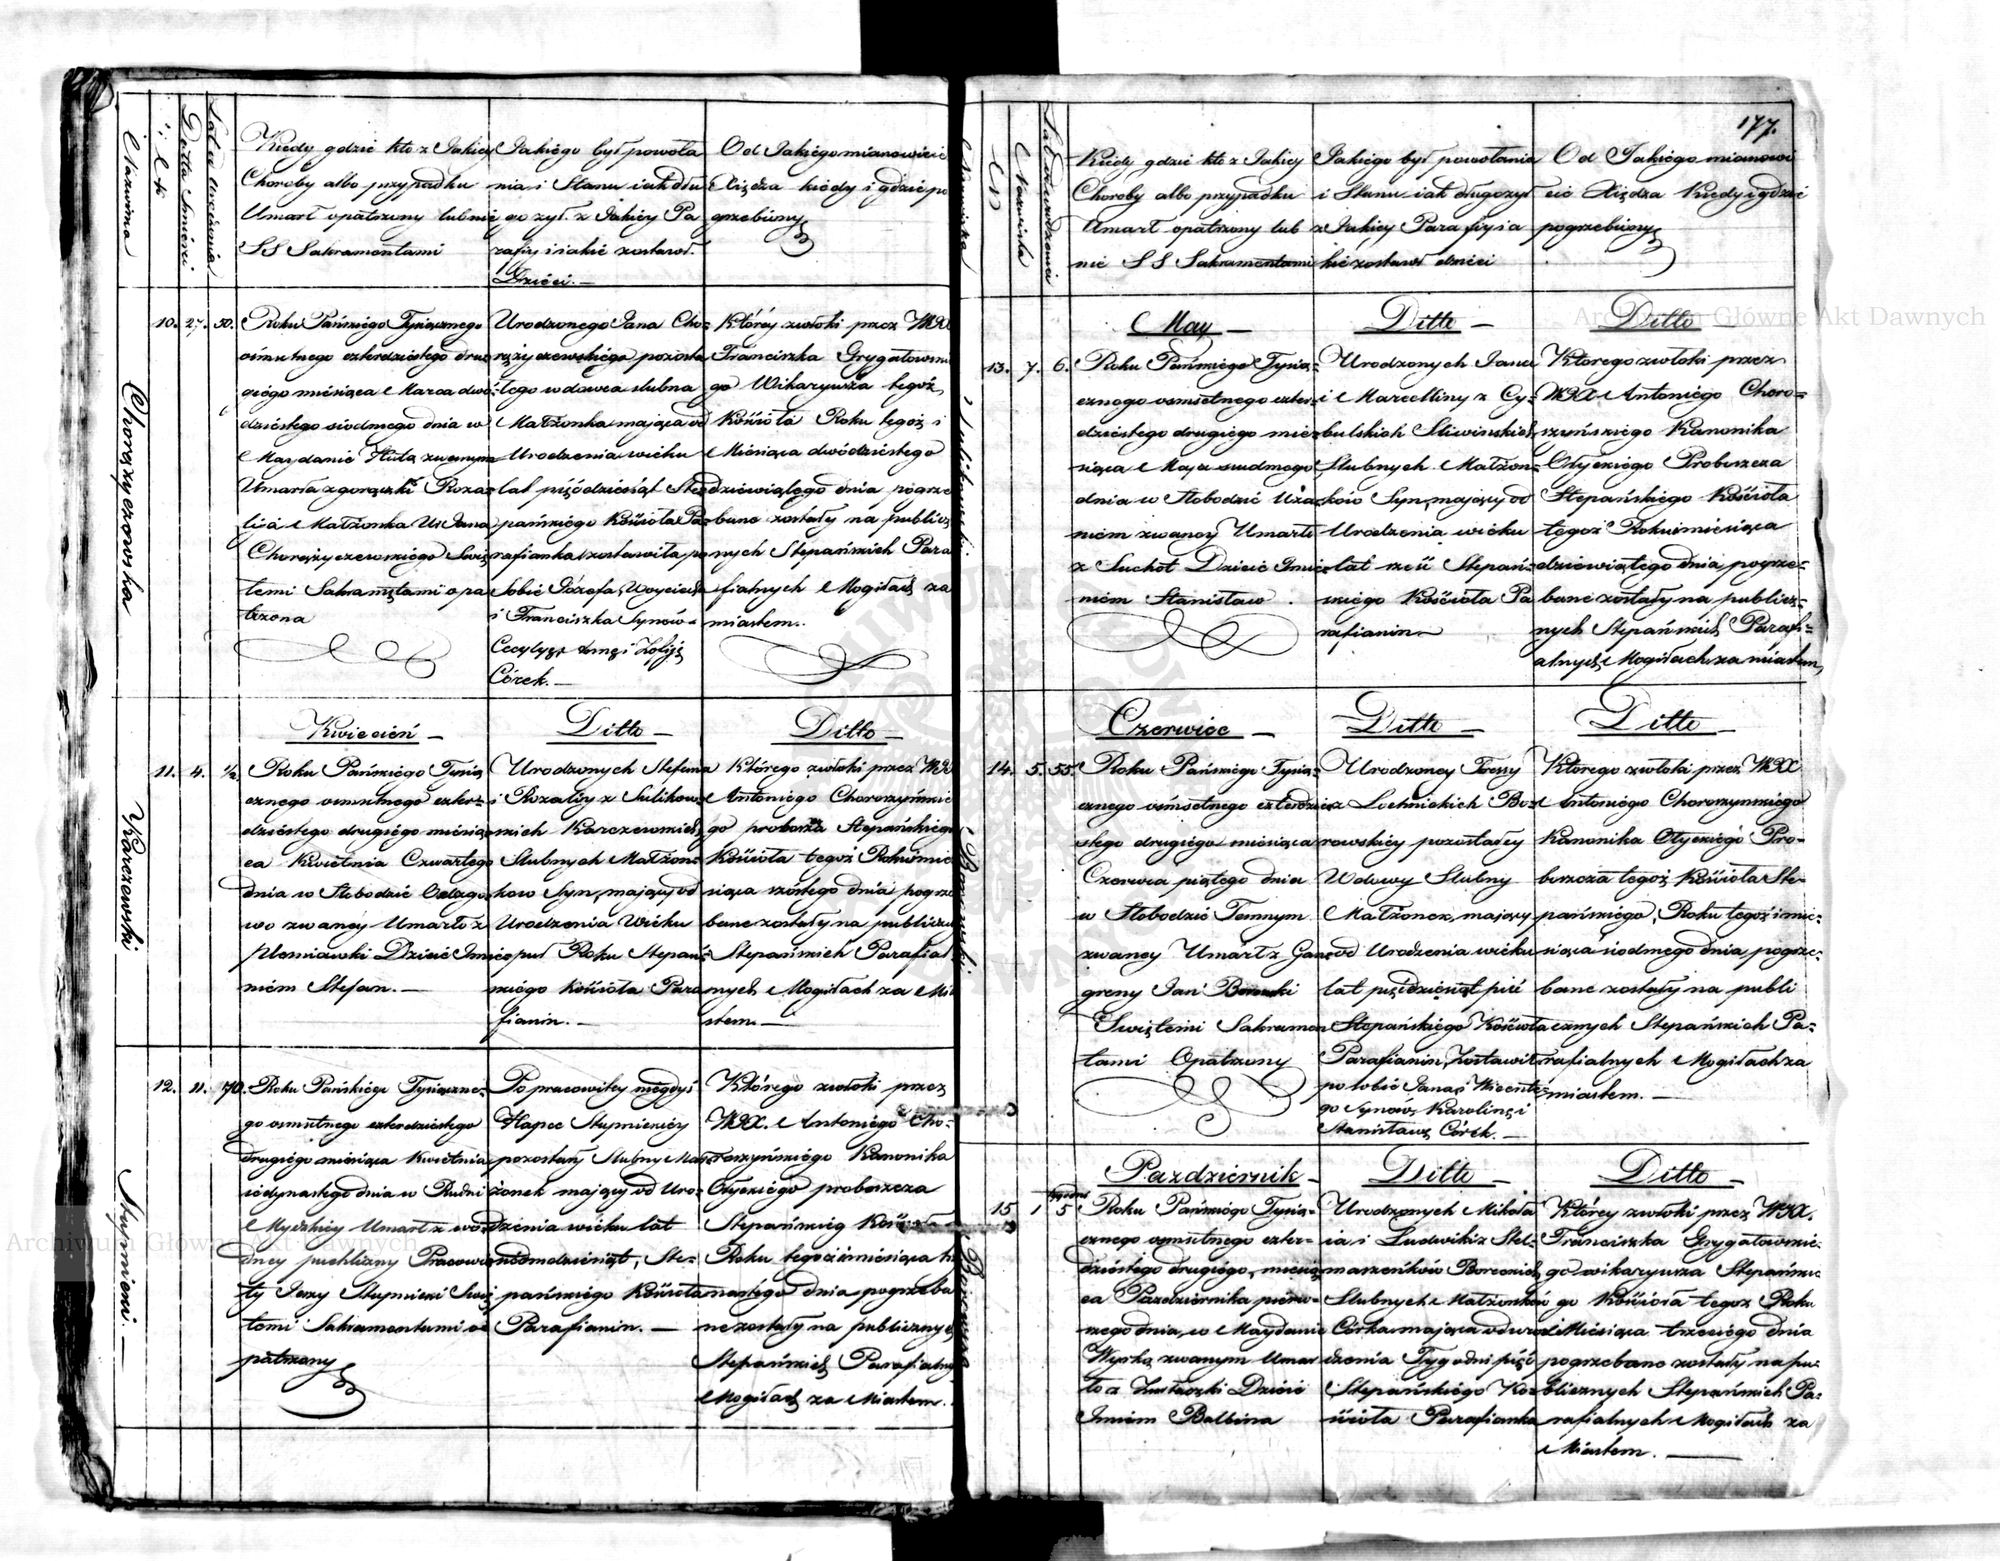 Nazwiska
N
Datta Smierci
Lata urodzenia
Kiedy gdzie kto z Jakiey
Choroby albo przypadku
Umarł opatrzony lub nie
SS Sakramentami
Jakiégo był powoła
nia i Stanu iak dłu
go żył. z Jakiey Pa
rafiy i iakie zostawł.
Dzieci.—
Od Jakiégo mianowicie
Xiędza kiedy i gdzie po
grzebiony
Chorążyczewska
10. 27. 50.
Roku Pańskiégo Tysiącznego
osmsetnego czterdziestego dru
giégo miésiąca Marca dwó-
dziéstego siodmego dnia w
Maydanie Huta zwanym
Umarła z gorączki Roza-
lia Małżonka Ur Jana
Chorążyczewskiégo Świę
temi Sakramętami opa
trzona
Urodzonego Jana Cho-
rążyczewskiégo pozosta
łego wdowca slubna
Małżonka maiąca od
Urodzenia wieku
lat pięćdziesiąt Ste
pańskiégo Kościoła Pa
rafianka zostawiła po
Sobie Józefa, Woyciecha
i Franciszka Synów
Cecylyą i Zofiją
Córek.—
Któréy zwłoki przez WJX
Franciszka Grygatowskie
go Wikaryusza tegoż
Kościoła Roku tegoż i
Miésiąca dwódziéstego
dziéwiątego dnia pogrze
bane zostały na publicz
nych Stepańskich Para
fialnych Mogiłach za
miastem.
Kwiecień — Ditto — Ditto —
Karczewski
11. 4. ½
Roku Pańskiégo Tysią
cznego osmsetnego czter-
dziéstego drugiégo miésią
ca Kwietnia Czwartego
dnia w Słobodzie
wo zwanéy Umarł z
Dziécie Imie
niém Stefan.—
Urodzonych Stefana
i Rozaliy z Sulikow-
skich Karczewskich
Slubnych Małżon
ków Syn, maiący od
Urodzenia Wieku
puł Roku Stepań-
skiégo Kościoła Para
fianin.—
Którego zwłoki przez WJX
Antoniégo Chorozyńskie
go proboszcza Stepańskiégo
Kościoła tegoż Roku i mie
siąca szóstego dnia pogrze
bane zostały na publiczn
Stepańskich Parafial
nych Mogiłach za Mia
stem—
Stupnicki —
12. 11. 70.
Roku Pańskiégo Tysiączne-
go osmsetnego czterdziéstego
drugiégo miésiąca Kwietnia
iedynastego dnia w Rudni
Umarł z wo
dnéy puchliny Pracowi
ty Jerzy Stupnicki Swię
temi Sakramentami o
patrzony
Po pracowitéy niegdyś
Hapce Stupnickiéy
pozostały Slubny Mał
żonek maiący od Uro-
dzenia wieku lat
siedmdziesiąt, Ste-
pańskiégo Kościoła
Parafianin.—
Którego zwłoki przez
WJX. Antoniégo Cho-
rozyńskiégo Kanonika
Ołyckiégo proboszcza
Roku tegoż i miésiąca
nastégo dnia pogrzeba
ne zostały na publicznych
Stepańskich Parafialnych
Mogiłach za Miastem.
177.
N
Nazwiska
Kiedy gdzie kto z Jakiey
Choroby albo przypadku
Umarł opatrzony lub
nie SS Sakramentami
Jakiégo był powołania
i Stanu iak długo żył
z Jakiey Parafiy i ia
kie zostawł dzieci
Od Jakiégo mianowi
cie Xiędza Kiedy i gdzie
pogrzebiony
May — Ditto — Ditto —
13. 7. 6.
Roku Pańskiégo Tysią-
cznego osmsetnego czter-
dziéstego drugiégo mie-
siąca Maja siudmego
dnia w Słobodzie
niem zwanéy Umarł
z Suchot Dziécie Imie-
niém Stanisław.
Urodzonych Jana
i Marcelliny z Cy-
bulskich Sliwinskich
Slubnych Małżon-
ków Syn, maiący od
Urodzenia wieku
lat sześć Stepań-
skiégo Kościoła Pa
rafianin—
Ktorego zwłoki przez
WJX Antoniégo Choro-
szyńskiégo Kanonika
Ołyckiégo Proboszcza
Stepańskiégo Kościoła
tegoż Roku i miésiąca
dziéwiątego dnia pogrze-
bane zostały na publicz-
nych Stepańskich Parafi-
alnych Mogiłach za miastem,
Czerwiec — Ditto — Ditto —
Borowski
14. 5. 55.
Roku Pańskiégo Tysią-
cznego osmsetnego czterdzie
stego drugiégo miésiąca
Czerwca piątego dnia
w Słobodzie Temnym
zwanéy Umarł z Gan-
greny Jan Borowski
Swiętemi Sakramen
tami Opatrzony
Urodzonéy Teressy
z Lochnickich Bo-
rowskiéy pozostałéy
Wdowy Slubny
Małżonek, maiący
od Urodzenia wieku
lat pięcdziesiąt pięć
Stepańskiégo Kościoła
Parafianin, Zostawił
po sobie Jana i Wicente-
go Synów, Karolinę i
Stanisławę Córek.—
Ktorego zwłoki przez WJX
Antoniégo Chorozynskiégo
Kanonika Ołyckiégo Pro-
boszcza tegoż Kościoła Ste-
pańskiégo, Roku tegoż i mie-
siąca siodmego dnia pogrze-
bane zostały na publi
cznych Stepańskich Pa-
rafialnych Mogiłach za
miastem.—
Pazdziernik — Ditto — Ditto —
15 1 5
Roku Pańskiégo Tysią-
cznego osmsetnego czter-
dziéstego drugiégo, miésią
ca Pazdziernika pierw-
szego dnia, w Maydanie
Wyrka zwanym Umar
ła z Dziécie
Imiém Balbina
Urodzonych Mikoła
ia i Ludwiki z Stel-
maszeńków Boreckich
Slubnych Małżonków
Córka maiąca od uro
dzenia Tygodni pięć
Stepańskiégo Koś-
cioła Parafianka
Któréy zwłoki przez WJX.
Franciszka Grygatowskie-
go wikaryusza Stepańskie
go Kościoła tegoż Roku
i Miésiąca trzeciégo dnia
pogrzebane zostały na pu-
blicznych Stepańskich Pa-
rafialnych Mogiłach za
Miastem.—
Archiwum Główne Akt Dawnych
Archiwum Główne Akt Dawnych